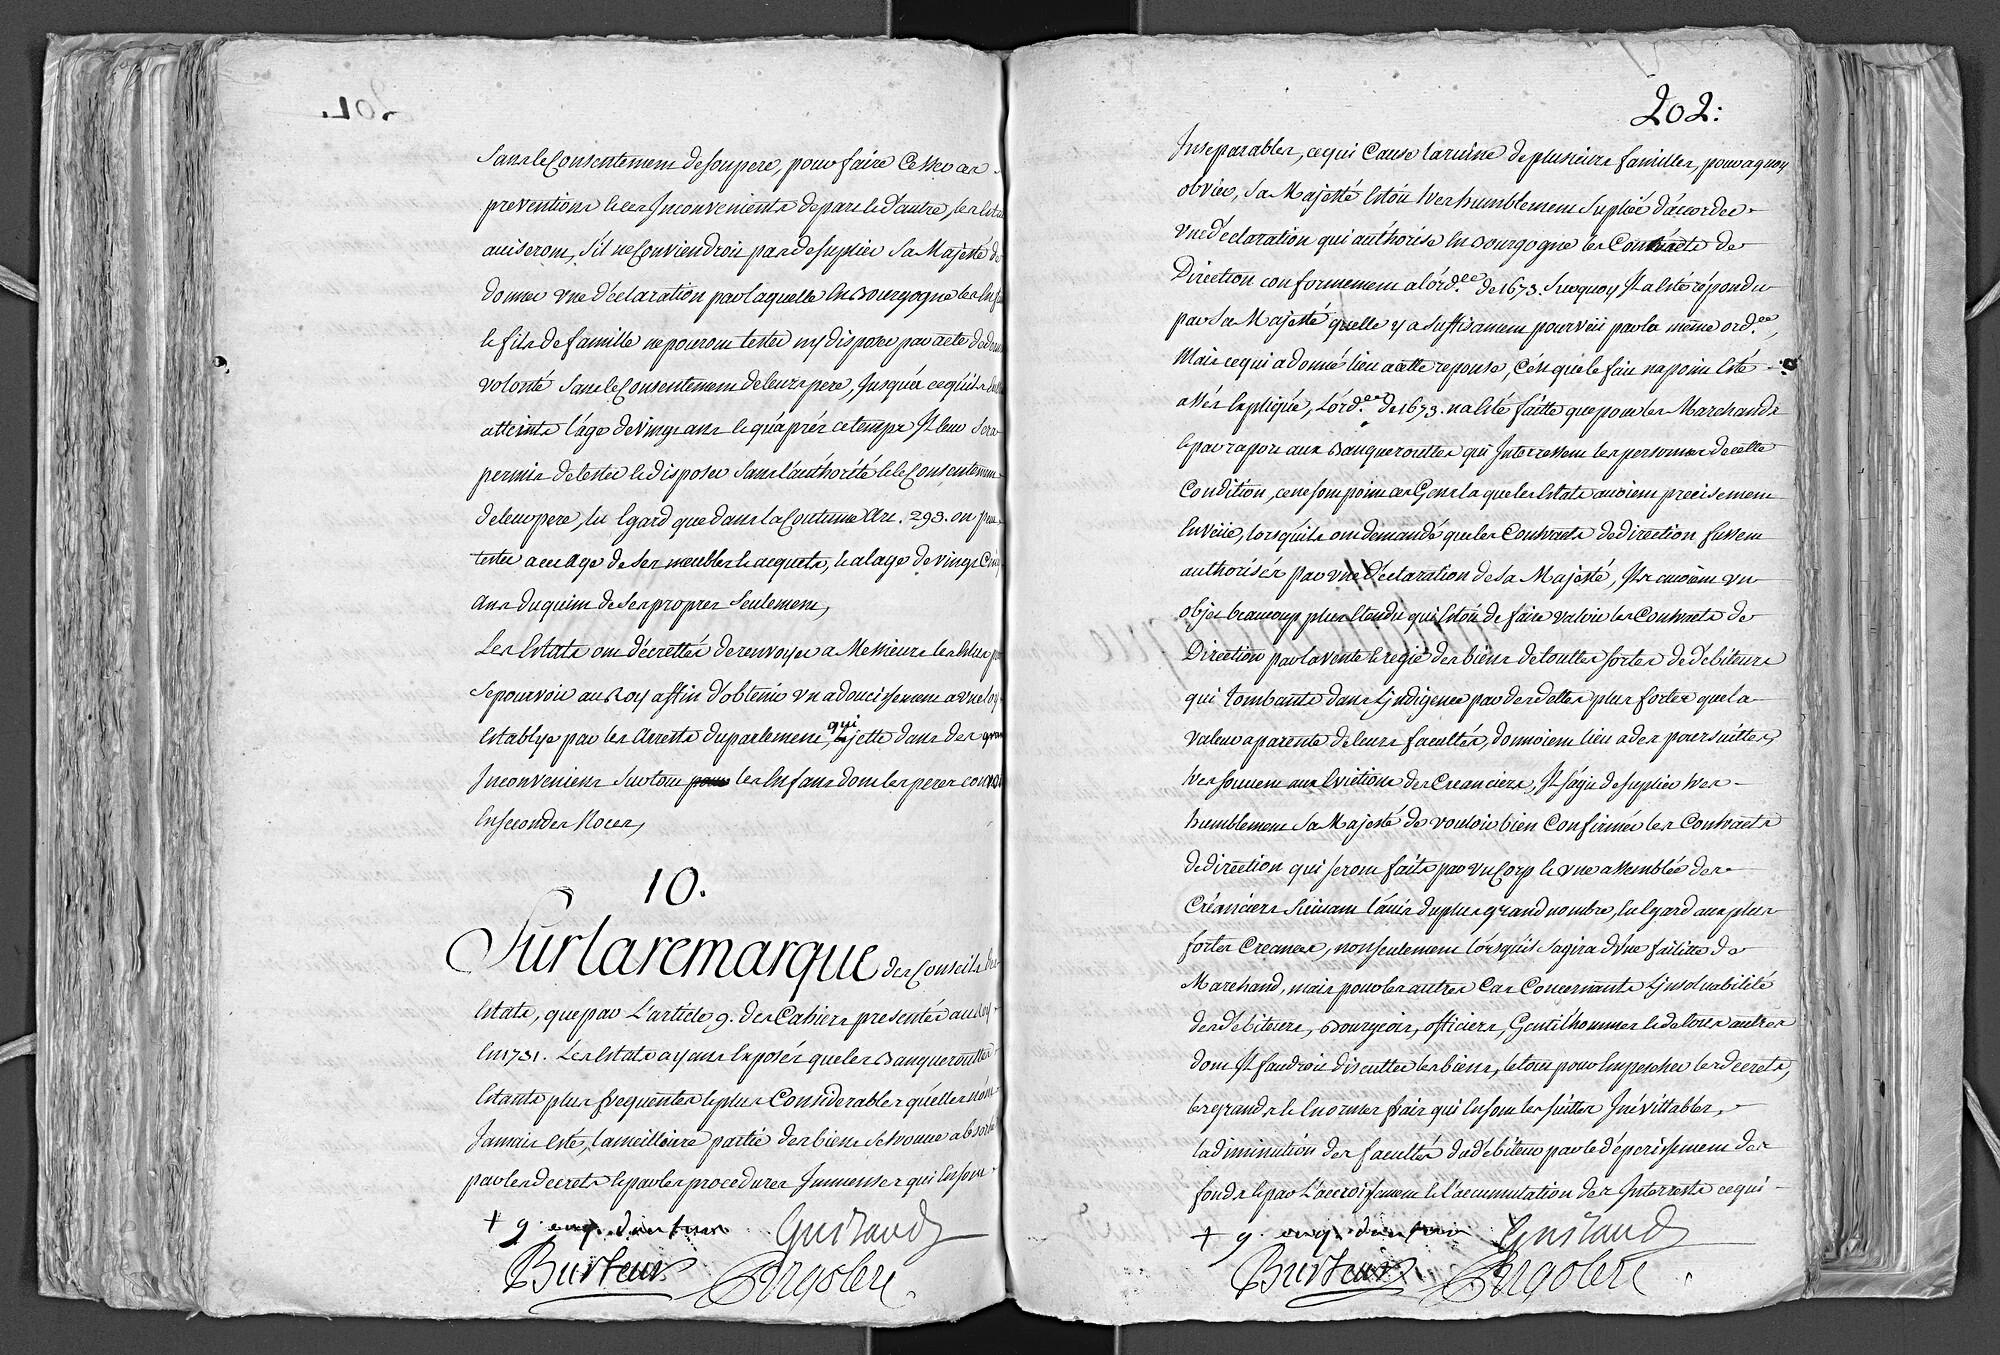 Sans le Consentement de Son pere, pour faire Cesser ces
preventions et ces Inconvenients de part et d'autre, les Estats
auiseront, S'il ne Conviendroit pas de Suplier Sa Majesté de
donner vne déclaration par laquelle En Bourgogne les Enfans
le fils de famille ne pouront tester ny disposer par acte de derniere
volonté Sans le Consentement de leurs pere, Jusqu'à ce qu'ils
atteints l'âge de vingt ans et qu'aprés ce temps Il leur Sera
permis de tester et disposer Sans l'authorité et le Consentement
de leur pere, Eu Egard que dans la Coutume Art. 293. on peut
tester a cet Age de Ses meubles et acquets, et a l'age de vingt Cinq
Ans du quint de Ses propres Seulement,
Les Estats ont décretté de renvoyer a Messieurs les Elus pour
Se pourvoir au Roy affin d'obtenir vn adoucissement a vne loy
establye par les Arrests du parlement, qui jette dans des grands
Inconveniens Surtout les Enfans dont les peres
En Secondes Noces,
10.
Sur la remarque des Conseils des
Estats, que par L'article 9. des Cahiers presentés au Roy
En 1731. Les Estats ayans Exposés que les Banqueroutte
Estants plus frequentes et plus Considerables qu'elles n'ont
Jamais esté, la meilleure partie des biens Se trouve absorbé
par les decrets et par les procedures Immenses qui En sont
+ g. Gustaud
Burteur Gorgoleré
202.
Inseparables, ce qui Cause la ruine de plusieurs familles, pour a quoy
obvier, Sa Majesté Estoit tres humblement Supliée d'accorder
vne déclaration qui authorise En Bourgogne les Contracts de
Direction conformement a l'ord.ce de 1673. Surquoy Il a esté répondu
par Sa Majesté qu'elle y a Suffisament pourveü par la même ord.ce,
Mais ce qui a donné lieu a cette reponse, C'est que le fait na point Esté
assés Expliqué, L'ord.ce de 1673. na Esté faitte que pour les Marchands
et par raport aux Banqueroutes qui Interessent les personnes de cette
Condition, ce ne Sont point ces Gens la que les Estats avoient precisement
En veüe, lorsqu'ils ont demandé que les Contracts de direction fussent
authorisés par vne déclaration de Sa Majesté, Ils avoient vn
objet beaucoup plus Etendu qui Estoit de faire valoir les Contracts de
Direction par la vente et regie des biens de touttes sortes de débiteurs
qui tombants dans L'indigence par des dettes plus fortes que la
valeur aparente de leurs facultés, donnoient lieu a des poursuittes,
tres souvent aux Evictions des Creanciers, Il s'agit de Suplier tres
humblement Sa Majesté de vouloir bien Confirmer les Contracts
de direction qui seront faits par vn Corp et vne assemblée des
Créanciers Suivant l'avis du plus grand nombre, Eu Egard aux plus
fortes Creances, non seulement lorsqu'il s'agira d'Une faillitte de
Marchand, mais pour les autres Cas Concernants L'insoluabilité
des débiteurs, Bourgeois, officiers, Gentilhommes et de tous autres
dont Il faudroit discutter les biens, et tout pour Empescher les decrets,
les grands et Enormes frais qui En sont les suittes Inévittables,
la diminution des facultés du débiteur par le dépérissement des
fonds et par L'accroissement et l'accumulation des Interrests ce qui
+ g. Gustaud
Burteur Gorgoleré